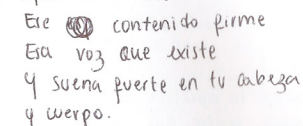 Ese contenido firme
Esa voz que existe
y suena fuerte en tu cabeza
y cuerpo.